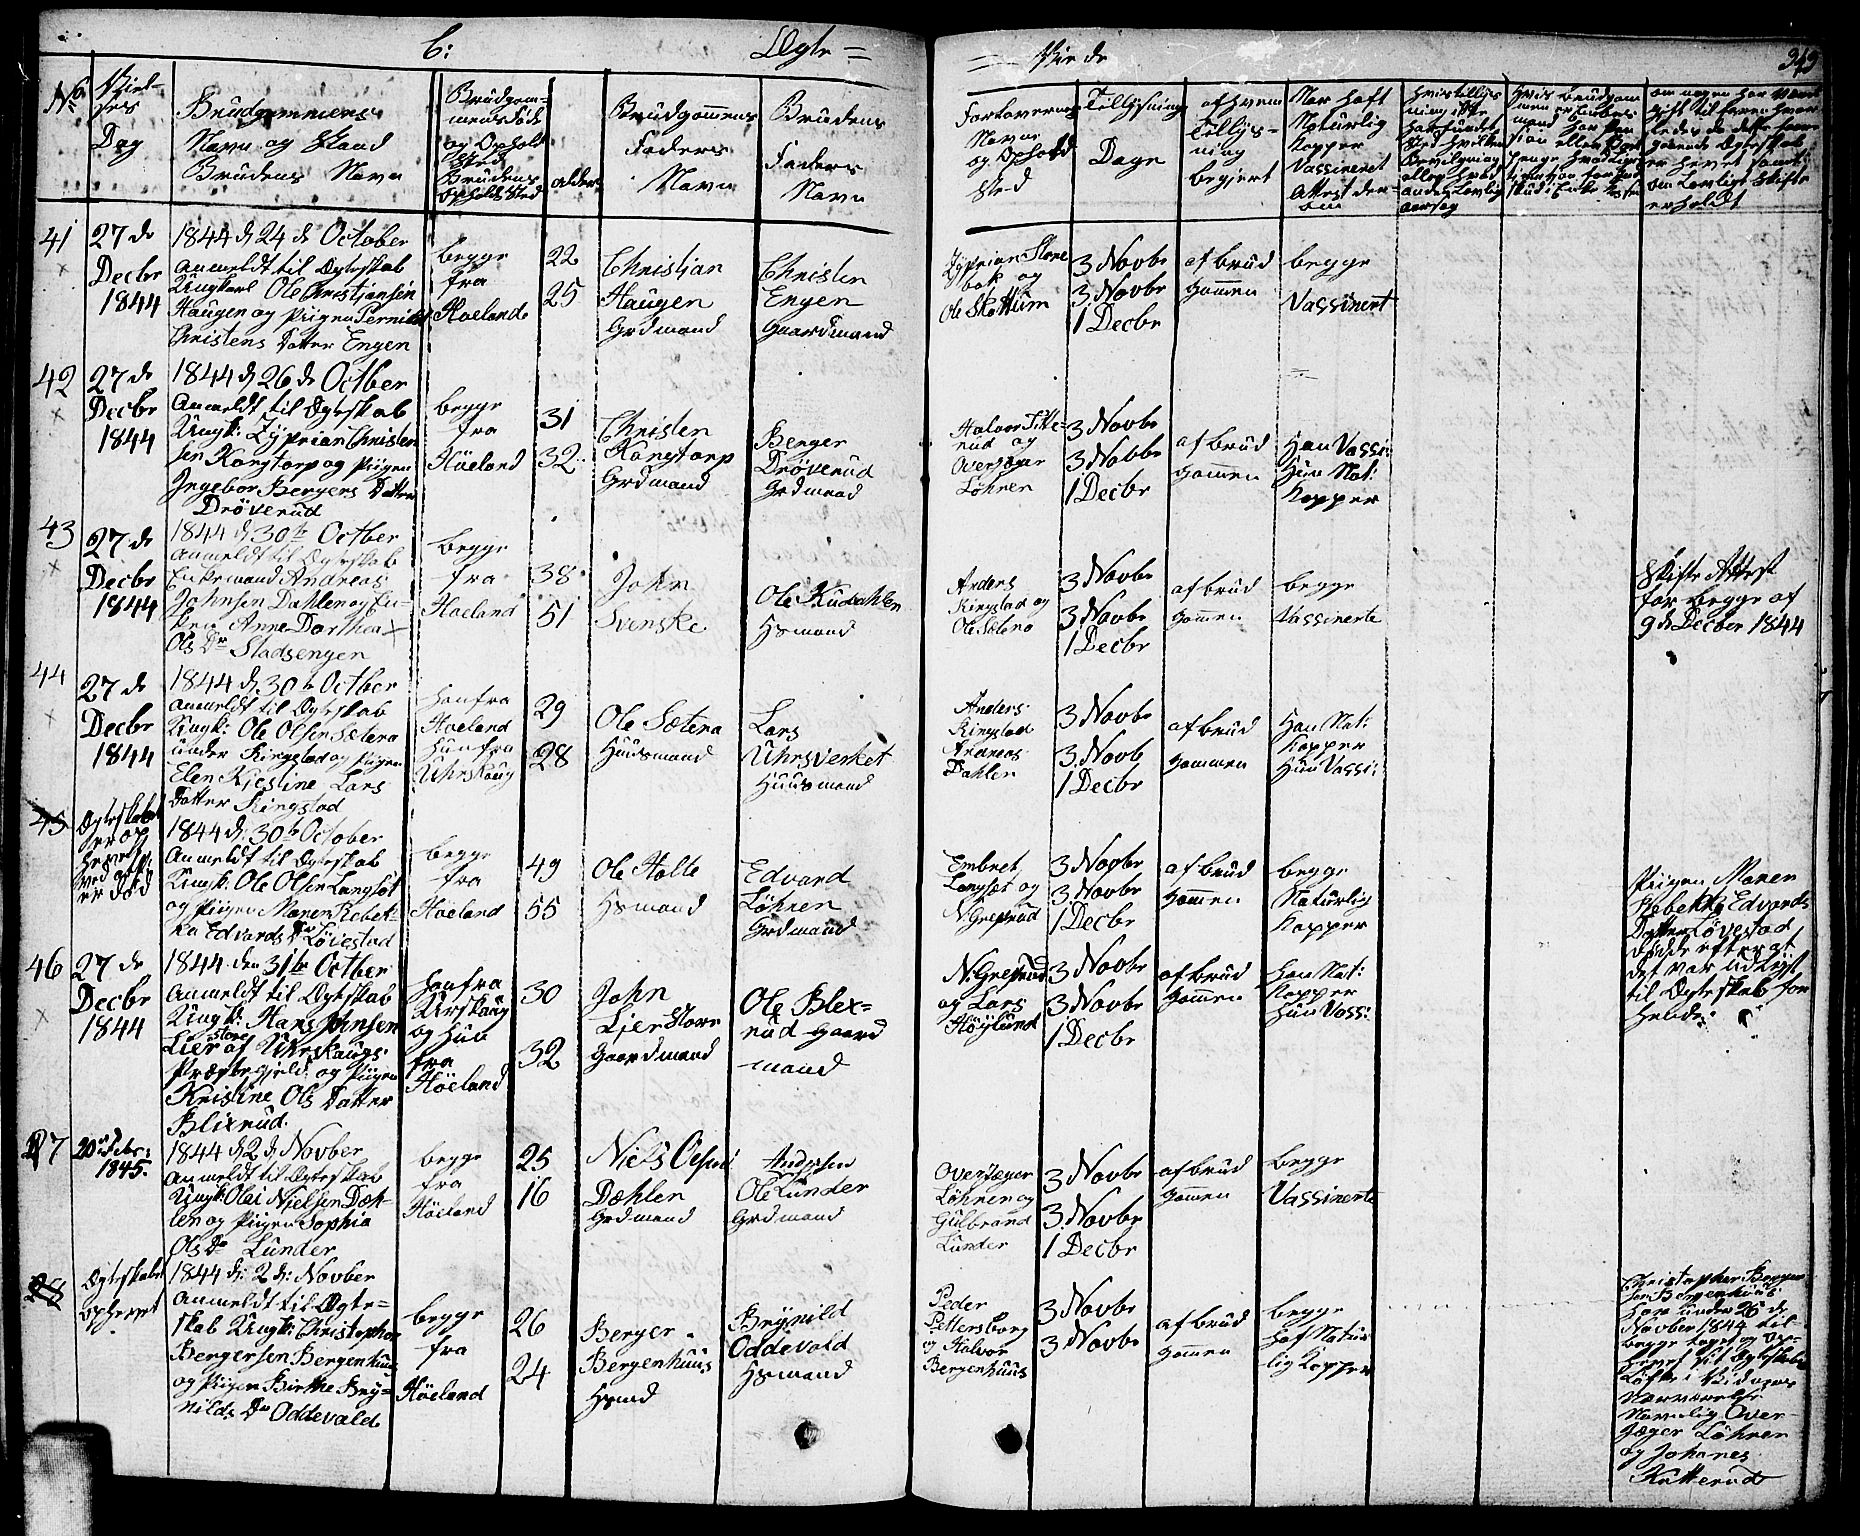 6: Ægte = = Viede 343
No
Viel-
ses
Dag
Brudgommens
Navn og Stand
Brudens Navn
Brudgom-
mens føde
og Ophold
sted
Brudens
opholdssted
alder
Brudgomens
Faders
Navn
Brudens
Faders
Navn
Forloverens
Navne
og Ophold
sted
Tillysning
Dage
af hvem
Tillys-
ning
begjert
Nar haft
Naturlig
Kopper
Vassineret
Attest der-
om
41
27 de
Decbr
1844
1844 d 24 de October
anmeldt til Ægteskab
Ungkarl Ole Christjansen
Haugen og Piigen Pernille
Christens Datter Engen
begge
fra
Høeland
22
25
Christjan
Haugen
Grdmand
Christen
Engen
Gaardmand
Zyprian Store
bak og
Ole Skottum
3 Novbr
3 Novbr
1 Decbr
af brud
gommen
begge
Vassinert
42
27 de
Decbr
1844
1844 d 26 de Octber
Anmeldt til Ægteskab
Ungk: Zyprian Christen
sen Kongtorp og Piigen
Ingebor Bergers Datter
Dröverud
begge
fra
Höeland
31
32
Christen
Kongtorp
Grdmand
Berger
Dröverud
Grdmand
Halvor Titte-
rud og
Overjæger
Löhren
3 Novbr
3 Nobbr
1 Decbr
af brud
gommen
Han Vassi:
Hun Nat:
Kopper
43
27 de
Decbr
1844
1844 d 30te Octber
anmeldt til Ægteskab
Enkemand Andreas
Johnsen Dahlen og En-
ken Anne Dorthea
Ols Dr Stadsengen
begge
fra
Høeland
38
51
John
Svenske
Ole Kudahlen
Hsmand
Anders
Kingstad og
Ole Sætena
3 Novbr
3 Novbr
1 Decbr
af brud
gommen
begge
Vassinerte
Skifte Attest
for begge af
9 de Decber 1844
44
27 de
Decbr
1844
1844 d 30te Octber
anmeldt til Ægteskab
Ungk: Ole Olsen Sætena
under Kingstad og Piigen
Elen Kjestine Lars
Datter Kingstad
han fra
Høeland
hun fra
Uhrskaug
29
28
Ole Sætena
Huusmand
Lars
Uhrsverket
Huusmand
Anders
Kingstad
Andreas
Dahlen
3 Novbr
3 Novb
1 Decbr
af brud
gommen
Han Nat:
Kopper
Hun Vassi:
45
Ægteskabet
er op
hevet
er död
1844 d 30te October
Anmeldt til Ægteskab
Ungk: Ole Olsen Langsöt
og Piigen Maren Rebek-
ka Edvards Dr Lövestad
begge
fra
Höeland
49
55
Ole Holte
Hsmand
Edvard
Löhren
Grdmand
Embret
Langsæt og
N. Greprud
3 Novbr
3 Novbr
1 Decbr
af brud
gommen
begge
Naturlig
Kopper
Piigen Maren
Rebekka Edvards
Datter Lövestad
döde efter at
det var udlyst
til Ægteskab for
hende.
46
27 de
Decbr
1844
1844 den 31te Octber
Anmeldt til Ægteskab
Ungk: Hans Johnsen
Lier store af Uhrskaugs
Præstegjeld og Piigen
Kristine Ols Datter
Blixrud.
han fra
Urskaug
og hun
fra
Höeland
30
32
John
Lier Store
Gaardmand
Ole Blex-
rud Gaard
mand
N. Greprud
og Lars
Höylund
3 Novbr
3 Novbr
1 Decbr
af brud
gommen
han Nat:
Kopper
hun Vassi:
27
20de Febr:
1845.
1844 d 2 d Novber
anmeldt til Ægteskab
Ungk: Olai Nielsen Dæh-
len og Piigen Sophia
Ols Dr Lunder
begge
fra
Höeland
25
16
Niels Olsen
Dæhlen
Grdmand
Andersen
Ole Lunder
Grdmand
Overjæger
Löhren og
Gulbrand
Lunder
3 Novbr
3 Novbr
1 Decbr
af brud
gommen
begge
Vassinerte
28
Ægteskabet
ophevet
1844 d: 2 d: Novber
anmeldt til Ægte-
skab Ungk: Christopher
Bergersen Bergenhuus
og Piigen Birthe Bry-
nilds Dr Oddevald
begge
fra
Höeland
26
24
Berger
Bergenhuus
Hsmd
Brynild
Oddevald
Hsmand
Peder
Pettersborg
og Halvor
Bergenhuus
3 Novbr
3 Novbr
af brud
gommen
begge
haf Natur
lig Kopper
Christopher Berger
sen Bergenhuus
har under 26 de
Novber 1844 til-
bage taget og op-
hevet sit Ægteskabs
Löfte i Vidners
Nærværelse
Navnlig Over-
jæger Löhren
og Johanes
Katterud